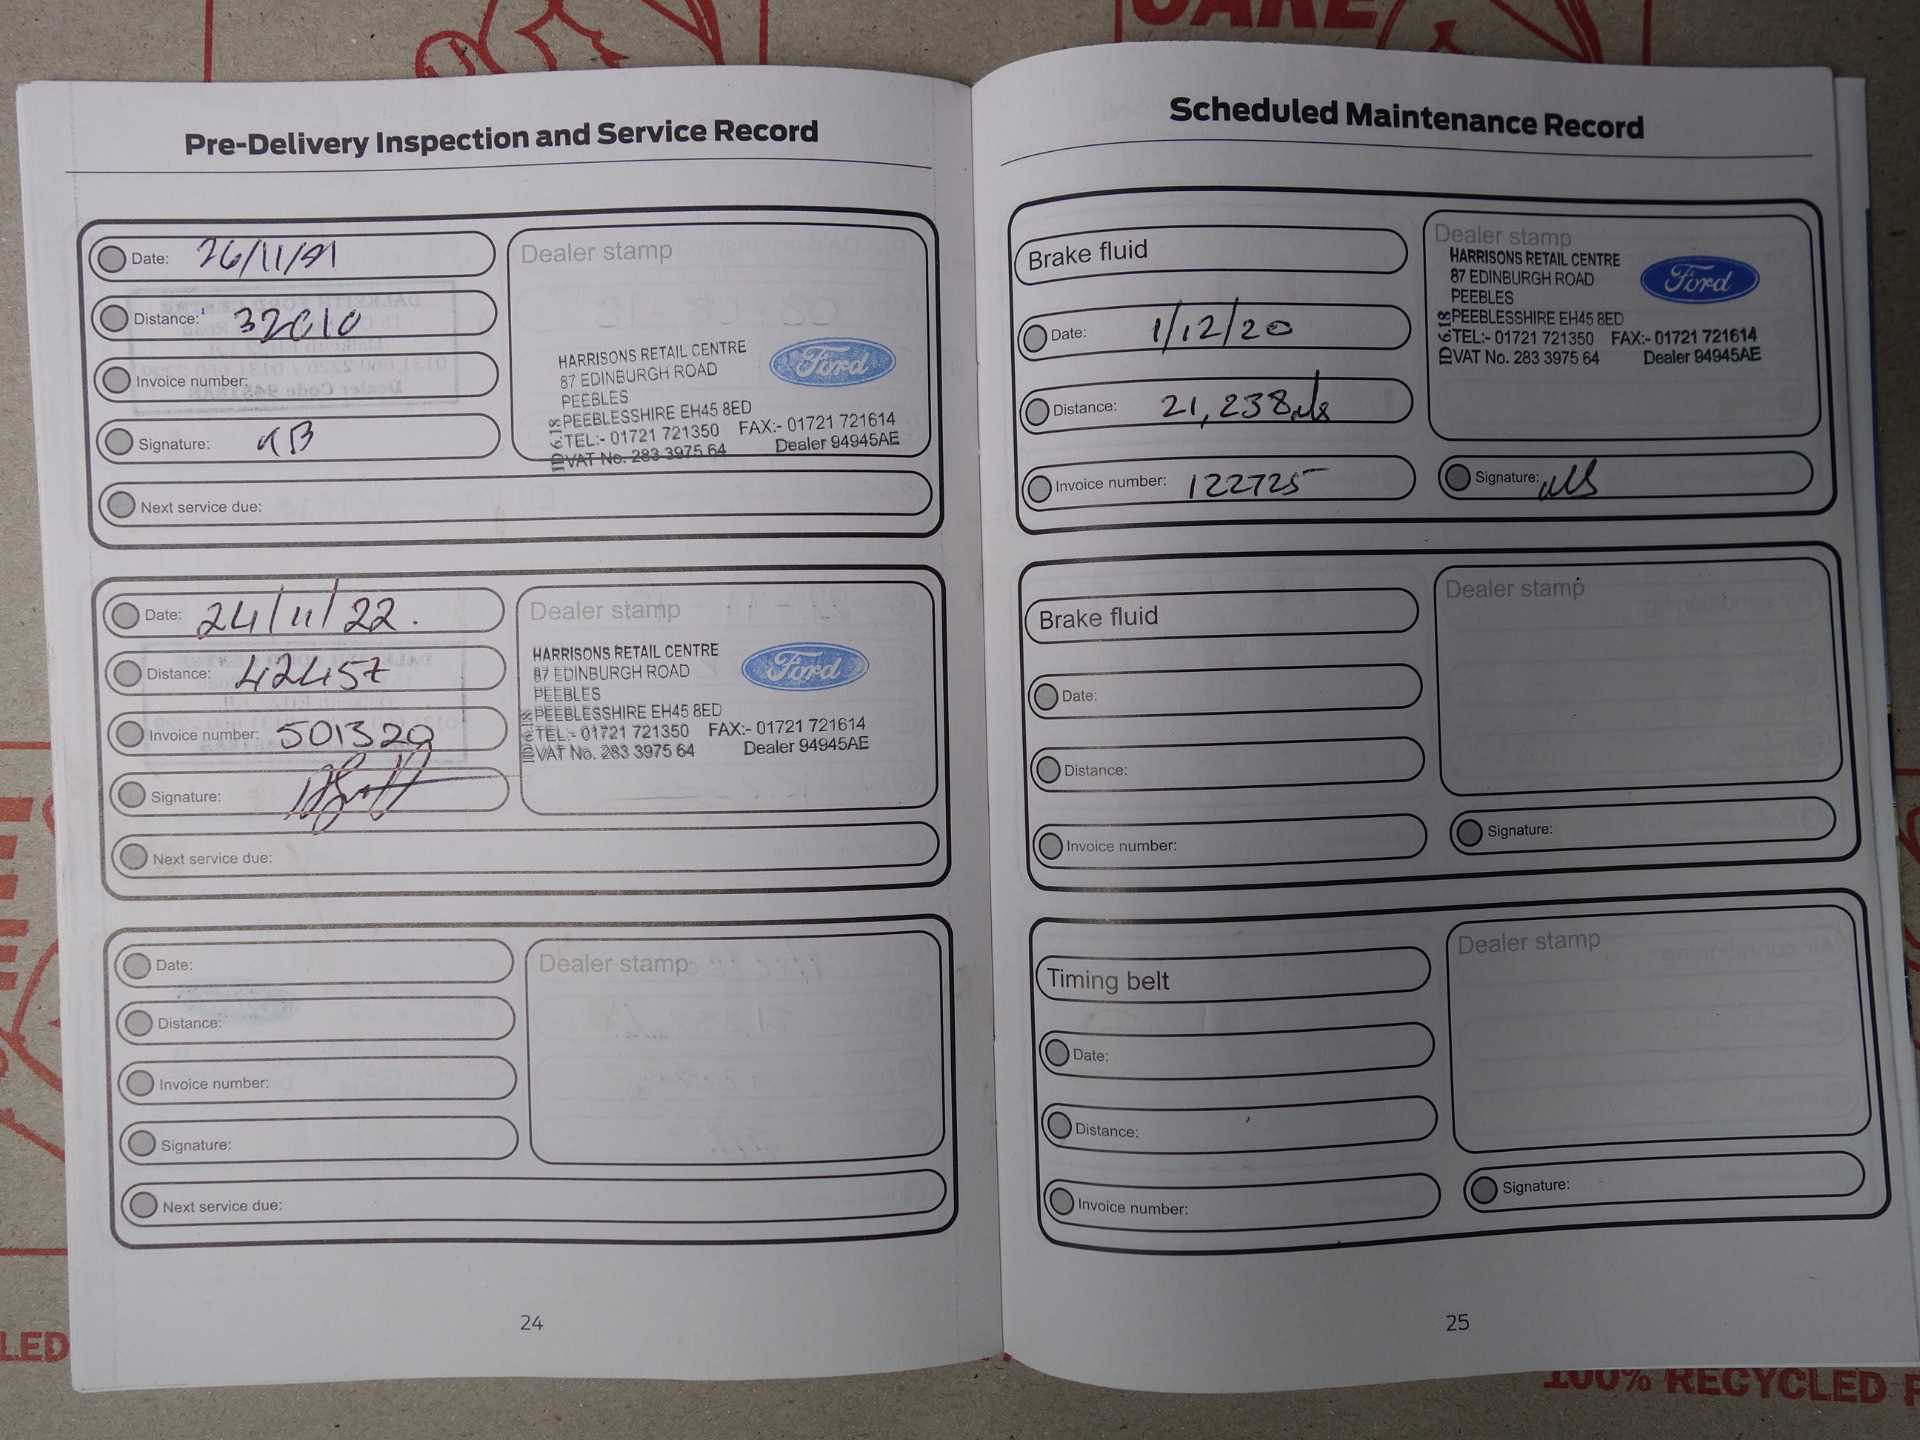 CARE
Pre-Delivery Inspection and Service Record
Date: 26/11/21
Distance: 32010
Invoice number:
Signature: KB
Next service due:
Dealer stamp
HARRISONS RETAIL CENTRE
87 EDINBURGH ROAD
PEEBLES
PEEBLESSHIRE EH45 8ED
TEL:- 01721 721350 FAX:- 01721 721614
VAT No. 283 3975 64 Dealer 94945AE
Ford
Date: 24/11/22.
Distance: 42457
Invoice number: 501329
Signature:
Next service due:
Dealer stamp
HARRISONS RETAIL CENTRE
87 EDINBURGH ROAD
PEEBLES
PEEBLESSHIRE EH45 8ED
TEL:- 01721 721350 FAX:- 01721 721614
VAT No. 283 3975 64 Dealer 94945AE
Ford
Date:
Distance:
Invoice number:
Signature:
Next service due:
Dealer stamp
24
Scheduled Maintenance Record
Brake fluid
Date: 1/12/20
Distance: 21,238mls
Invoice number: 122725
Dealer stamp
HARRISONS RETAIL CENTRE
87 EDINBURGH ROAD
PEEBLES
PEEBLESSHIRE EH45 8ED
TEL:- 01721 721350 FAX:- 01721 721614
VAT No. 283 3975 64 Dealer 94945AE
Ford
Signature:
Brake fluid
Date:
Distance:
Invoice number:
Dealer stamp
Signature:
Timing belt
Date:
Distance:
Invoice number:
Dealer stamp
Signature:
25
100% RECYCLED